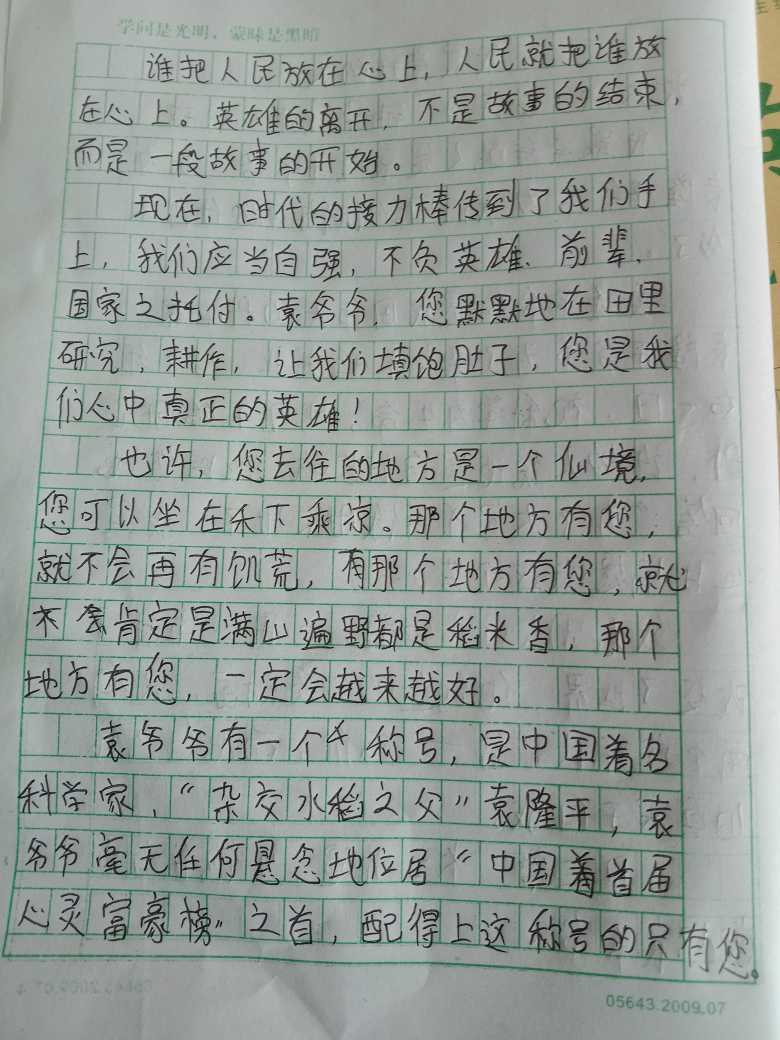 学问是光明，蒙昧是黑暗
谁把人民放在心上，人民就把谁放
在心上。英雄的离开，不是故事的结束，
而是一段故事的开始。
现在，时代的接力棒传到了我们手
上，我们应当自强，不负英雄、前辈、
国家之托付。袁爷爷，您默默地在田里
研究，耕作，让我们填饱肚子，您是我
们心中真正的英雄！
也许，您去往的地方是一个仙境，
您可以坐在禾下乘凉。那个地方有您，
就不会再有饥荒，有那个地方有您，就
不会肯定是满山遍野都是稻米香，那个
地方有您，一定会越来越好。
袁爷爷有一个个称号，是中国着名
科学家，“杂交水稻之父”袁隆平，袁
爷爷毫无任何悬念地位居“中国着首届
心灵富豪榜”之首，配得上这称号的只有您。
05643.2009.07